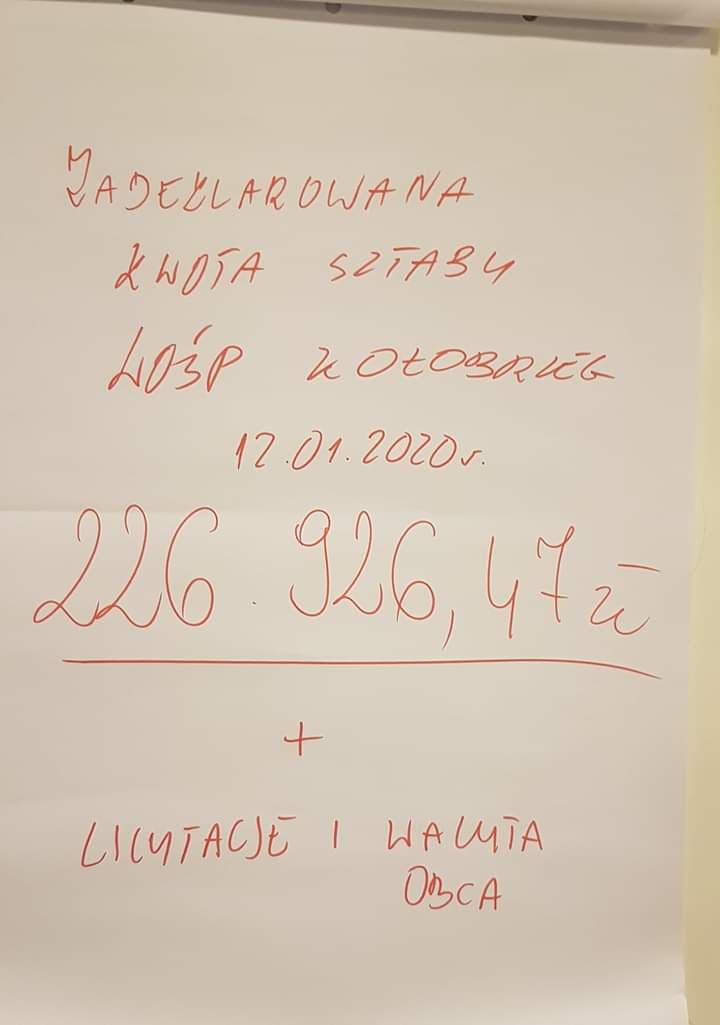 ZADEKLAROWANA
KWOTA SZTABU
WOŚP KOŁOBRZEG
12.01.2020r.
226.926,47 zł
+
LICYTACJE I WALUTA
OBCA